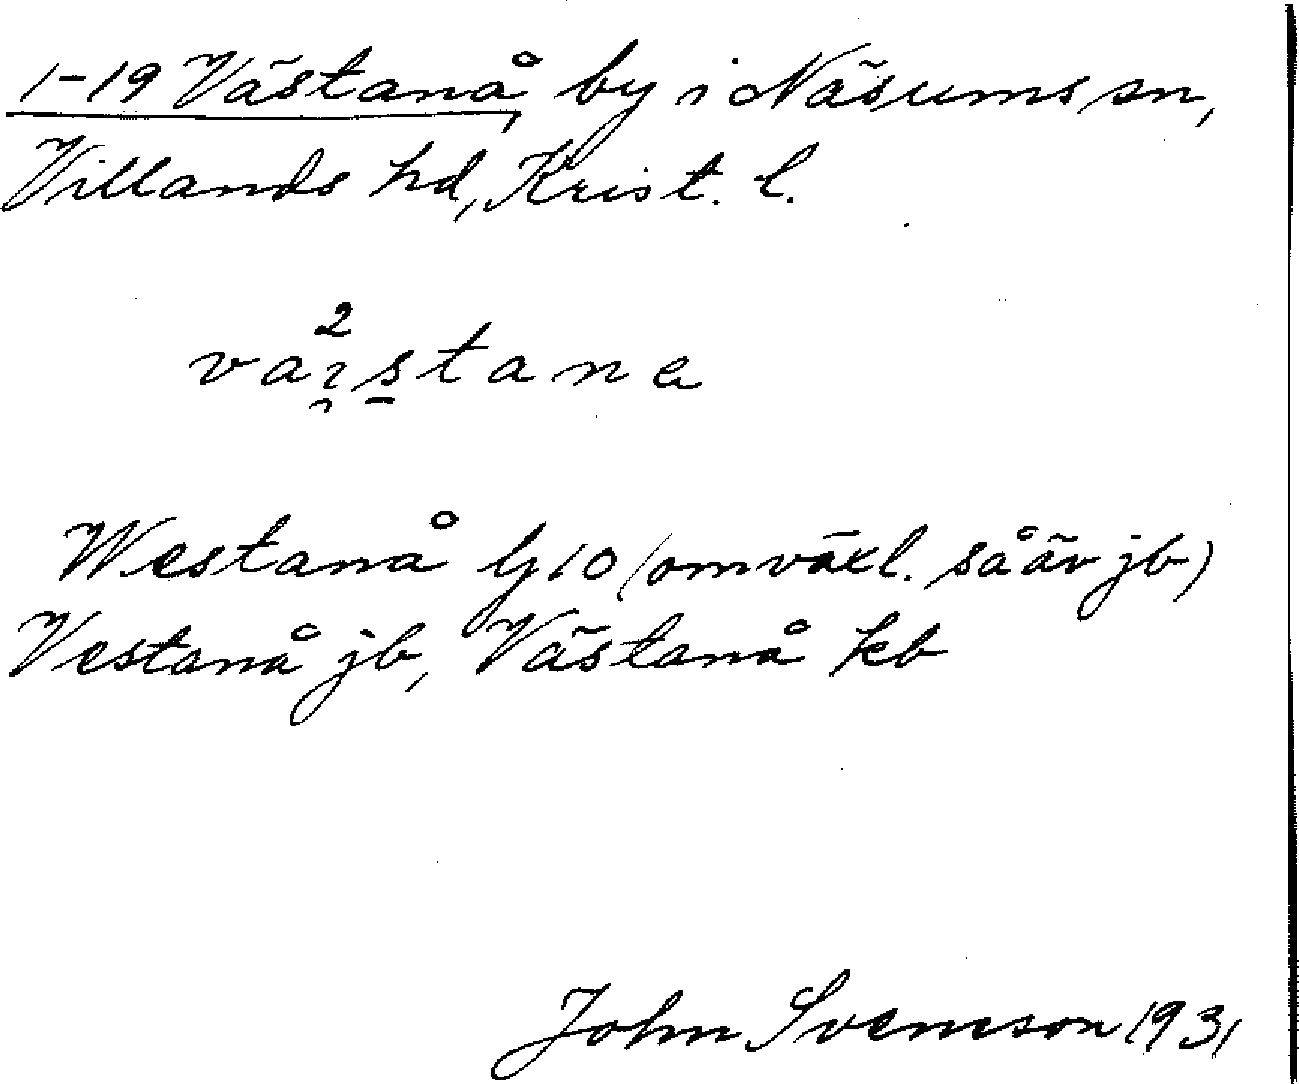 1-19 Västanå, by i Näsums sn,
Villands hd, Krist. l.
2
vaıstana
Westanå Gj 10 (omväxl. så äv jb)
Vestanå jb, Västanå kb
John Svensson 1931